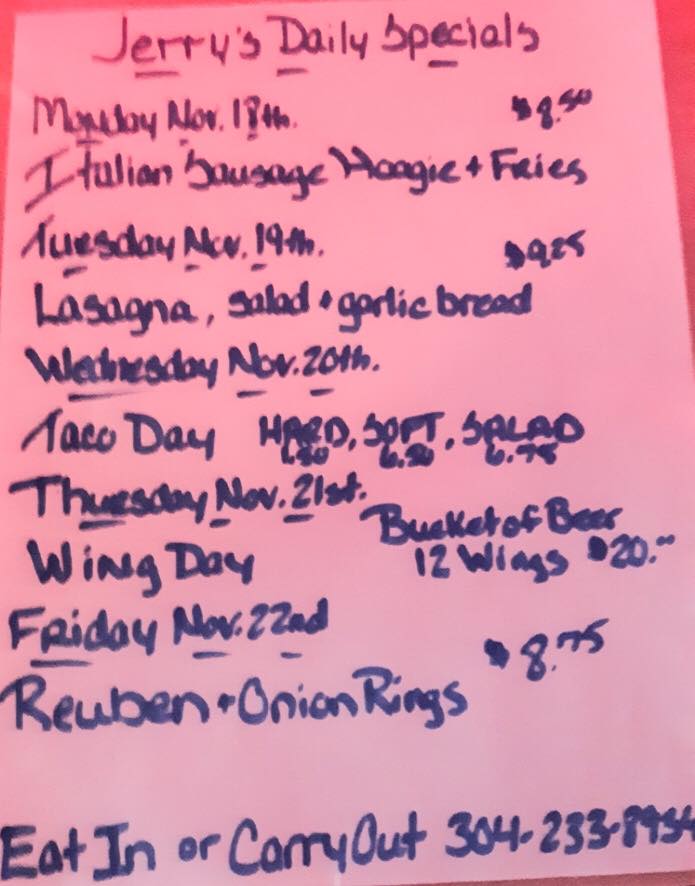 Jerry's Daily Specials
Monday Nov. 18th. $8.50
Italian Sausage Hoagie + Fries
Tuesday Nov. 19th. $9.25
Lasagna, salad + garlic bread
Wednesday Nov. 20th.
Taco Day HARD, SOFT, SALAD
6.75
Thursday Nov. 21st.
Bucket of Beer
Wing Day 12 Wings $20.00
Friday Nov. 22nd
$8.75
Reuben + Onion Rings
Eat In or Carry Out